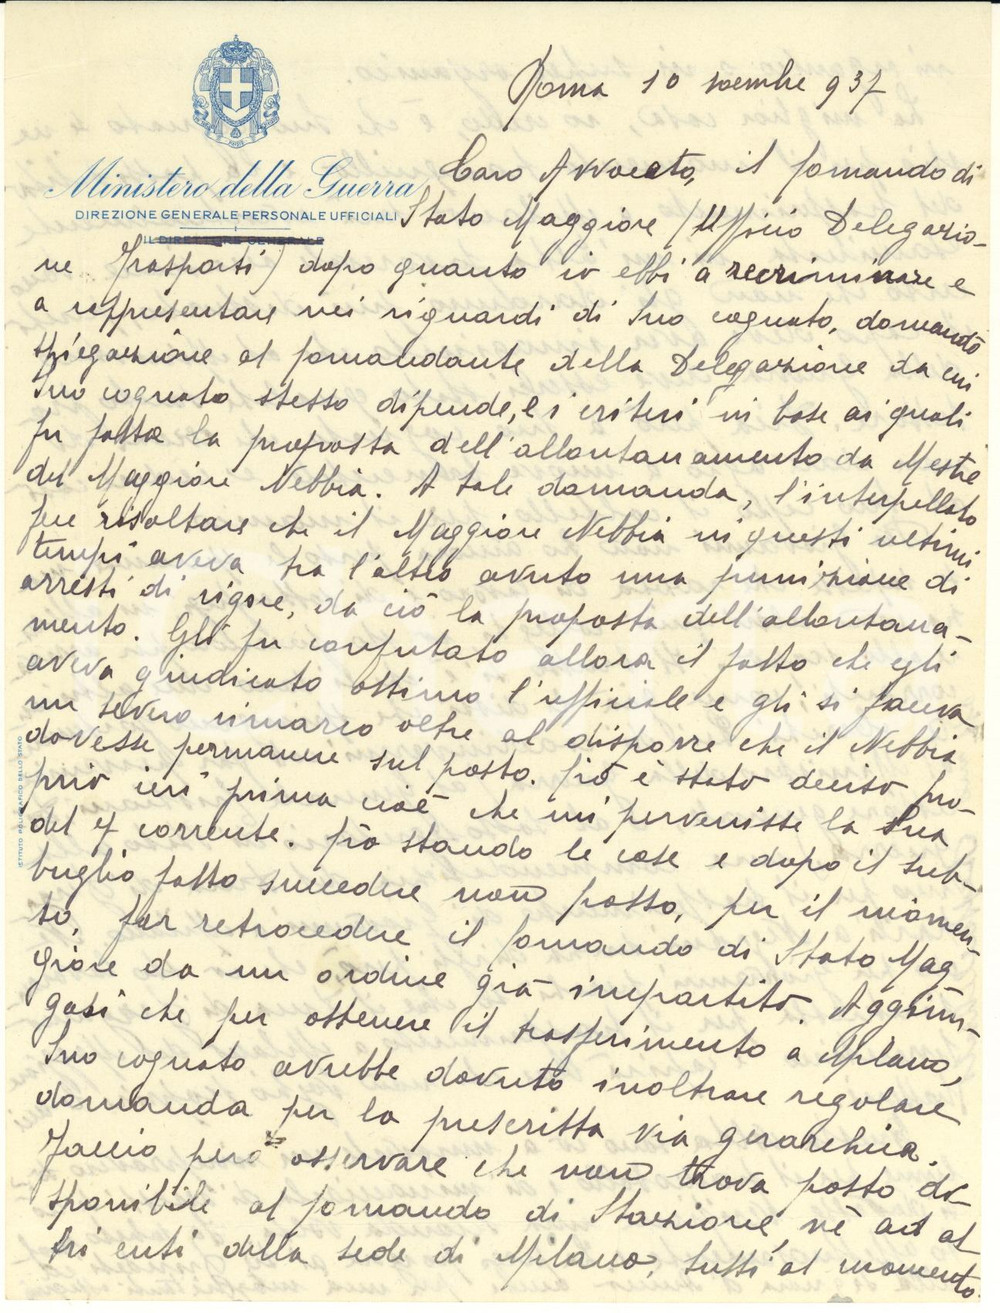 Roma 10 novembre 937
Ministero della Guerra
DIREZIONE GENERALE PERSONALE UFFICIALI
IL DIRETTORE GENERALE
Caro Avvocato, il Comando di
Stato Maggiore (Ufficio Delegazio-
ne Trasporti) dopo quanto io ebbi a recriminare e
a rappresentare nei riguardi di Suo cognato, domandò
spiegazione al Comandante della Delegazione da cui
Suo cognato stesso dipende, e i criteri in base ai quali
fu fatta la proposta dell'allontanamento da Mestre
del Maggiore Nebbia. A tale domanda, l'interpellato
fece risultare che il Maggiore Nebbia in questi ultimi
tempi aveva tra l'altro avuto una punizione di
arresti di rigore, da ciò la proposta dell'allontana-
mento. Gli fu confutato allora il fatto che egli
aveva giudicato ottimo l'ufficiale e gli si faceva
un severo rimarco oltre al disporre che il Nebbia
dovesse permanere sul posto. Ciò è stato deciso pro-
prio ieri prima cioè che mi pervenisse la Sua
del 7 corrente. Ciò stando le cose e dopo il sub-
buglio fatto succedere non posso, per il momen-
to, far retrocedere il Comando di Stato Mag-
giore da un ordine già impartito. Aggiun-
gasi che per ottenere il trasferimento a Milano,
Suo cognato avrebbe dovuto inoltrare regolare
domanda per la prescritta via gerarchica.
Faccio però osservare che non trova posto di-
sponibile al Comando di Stazione, nè ad al-
tri enti della sede di Milano, tutti al momento
ISTITUTO POLIGRAFICO DELLO STATO